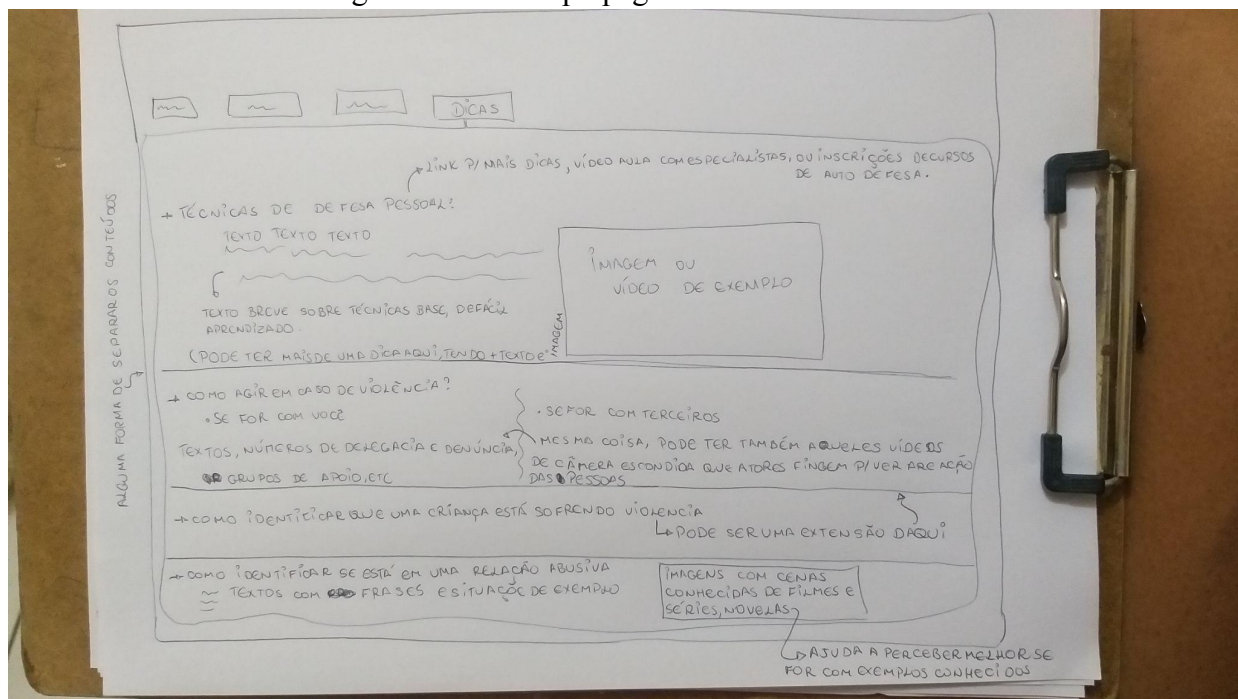 DICAS
LINK P/ MAIS DICAS, VÍDEO AULA COM ESPECIALISTAS, OU INSCRIÇÕES DE CURSOS
DE AUTO DEFESA.
→ TÉCNICAS DE DEFESA PESSOAL:
TEXTO TEXTO TEXTO
IMAGEM OU
VÍDEO DE EXEMPLO
TEXTO BREVE SOBRE TÉCNICAS BASE, DE FÁCIL
APRENDIZADO.
(PODE TER MAIS DE UMA DICA AQUI, TENDO + TEXTO E
IMAGEM
ALGUMA FORMA DE SEPARAR OS CONTEÚDOS
→ COMO AGIR EM CASO DE VIOLÊNCIA?
• SE FOR COM VOCÊ
TEXTOS, NÚMEROS DE DELEGACIA E DENÚNCIA,
GRUPOS DE APOIO, ETC
• SE FOR COM TERCEIROS
MESMA COISA, PODE TER TAMBÉM AQUELES VÍDEOS
DE CÂMERA ESCONDIDA QUE ATORES FINGEM P/ VER A REAÇÃO
DAS PESSOAS
→ COMO IDENTIFICAR QUE UMA CRIANÇA ESTÁ SOFRENDO VIOLENCIA
PODE SER UMA EXTENSÃO DAQUI
→ COMO IDENTIFICAR SE ESTÁ EM UMA RELAÇÃO ABUSIVA
TEXTOS COM FRASES E SITUAÇÕE DE EXEMPLO
IMAGENS COM CENAS
CONHECIDAS DE FILMES E
SÉRIES, NOVELAS
AJUDA A PERCEBER MELHOR SE
FOR COM EXEMPLOS CONHECIDOS